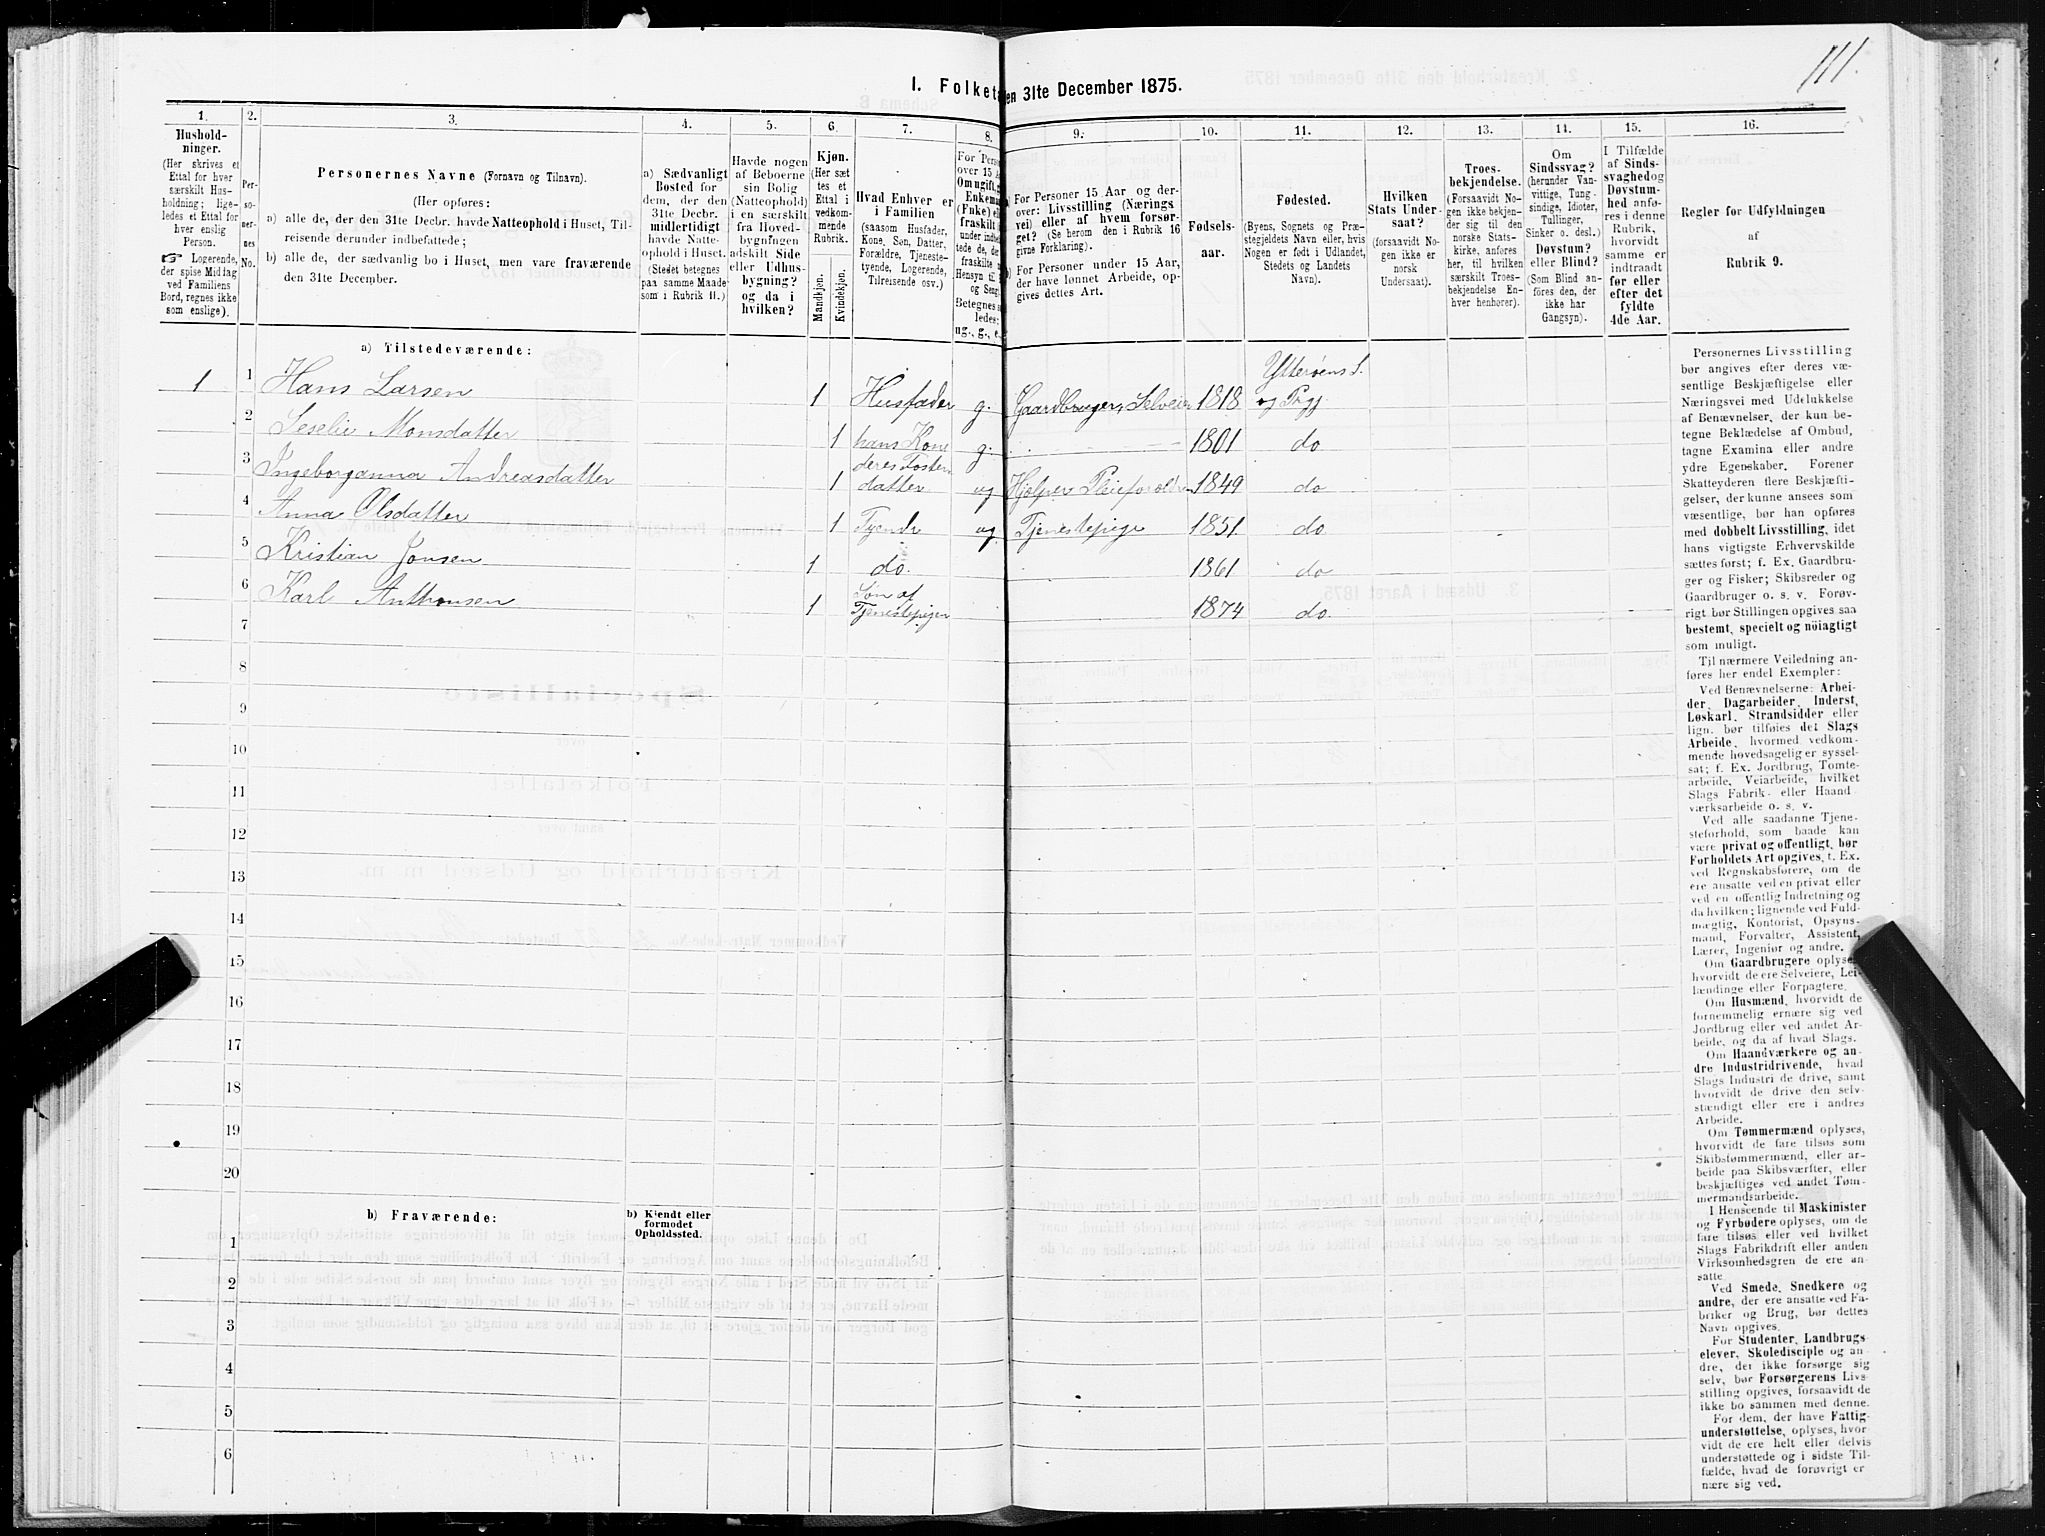 111.
I. Folketa en 31te December 1875.
1. 2. 3. 4. 5. 6. 7. 8. 9. 10. 11. 12. 13. 14. 15. 16.
Hushold-
ninger.
(Her skrives et
Ettal for hver
særskilt Hus-
holdning; lige-
ledes et Ettal for
hver enslig
Person.
☞ Logerende,
der spise Middag
ved Familiens
Bord, regnes ikke
som enslige).
Per-
so-
ner-
nes
No.
Personernes Navne (Fornavn og Tilnavn).
(Her opføres:
a) alle de, der den 31te Decbr. havde Natteophold i Huset, Til-
reisende derunder indbefattede;
b) alle de, der sædvanlig bo i Huset, men vare fraværende
den 31te December.
a) Sædvanligt
Bosted for
dem, der den
31te Decbr.
midlertidigt
havde Natte-
ophold i Huset.
(Stedet betegnes
paa samme Maade
som i Rubrik 11.)
Havde nogen
af Beboerne
sin Bolig
(Natteophold)
i en særskilt
fra Hoved-
bygningen
adskilt Side
eller Udhus-
bygning?
og da i
hvilken?
Kjøn.
(Her sæt
tes et
Ettal i
vedkom-
mende
Rubrik.
Mandkjøn.
Kvindekjøn.
Hvad Enhver er
i Familien
(saasom Husfader,
Kone, Søn, Datter,
Forældre, Tjeneste-
tyende, Logerende,
Tilreisende osv.)
For Perso
over 15 A
Om ugift, g
Enkema
(Enke) e
fraskilt
under indbe
tede de, de
fraskilte
Hensyn til
og Seng.
Betegnes s
ledes:
ug., g., e.
a) For Personer 15 Aar og der-
over: Livsstilling (Nærings
vei) eller af hvem forsør-
get? (Se herom den i Rubrik 16
givne Forklaring).
b) For Personer under 15 Aar,
der have lønnet Arbeide, op-
gives dettes Art.
Fødsels-
aar.
Fødested.
(Byens, Sognets og Præ-
stegjeldets Navn eller, hvis
Nogen er født i Udlandet,
Stedets og Landets
Navn).
Hvilken
Stats Under-
saat?
(forsaavidt No-
gen ikke er
norsk
Undersaat).
Troes-
bekjendelse.
(Forsaavidt No-
gen ikke bekjen-
der sig til den
norske Stats-
kirke, anføres
her, til hvilken
særskilt Troes-
bekjendelse En-
hver henhører).
Om
Sindssvag?
(herunder Van-
vittige, Tung-
sindige, Idioter,
Tullinger,
Sinker o. desl.)
Døvstum?
eller Blind?
(Som Blind an-
føres den, der
ikke har
Gangsyn).
I Tilfælde
af Sinds-
svaghed og
Døvstum-
hed anfø-
res i denne
Rubrik,
hvorvidt
samme er
indtraadt
før eller
efter det
fyldte
4de Aar.
Regler for Udfyldningen
af
Rubrik 9.
a) Tilstedeværende:
1 1 Hans Larsen 1 Husfader g. Gaardbruger, Selveier 1818 Ytterøens S. og Prgj
2 Seselie Monsdatter 1 hans Kone g. 1801 do
3 Ingeborganna Andreasdatter 1 deres Foster datter ug Hjælper Pleieforældrene 1849 do
4 Anna Olsdatter 1 Tyende ug. Tjenestepige 1851. do
5 Kristian Jonsen 1 do. 1861 do
6 Karl Anthonsen 1 Søn af Tjenestepigen 1874 do.
7
8
9
10
11
12
13
14
15
16
17
18
19
20
b) Fraværende:
b) Kjendt eller
formodet
Opholdssted.
1
2
3
4
5
6
Personernes Livsstilling
bør angives efter deres væ-
sentlige Beskjæftigelse eller
Næringsvei med Udelukkelse
af Benævnelser, der kun be-
tegne Beklædelse af Ombud,
tagne Examina eller andre
ydre Egenskaber. Forener
Skatteyderen flere Beskjæfti-
gelser, der kunne ansees som
væsentlige, bør han opføres
med dobbelt Livsstilling, idet
hans vigtigste Erhvervskilde
sættes først; f. Ex. Gaardbru-
ger og Fisker; Skibsreder og
Gaardbruger o. s. v. Forøv-
rigt bør Stillingen opgives saa
bestemt, specielt og nøiagtigt
som muligt.
Til nærmere Veiledning an-
føres her endel Exempler:
Ved Benævnelserne: Arbei-
der, Dagarbeider, Inderst,
Løskarl, Strandsidder eller
lign. bør tilføies det Slags
Arbeide, hvormed vedkom-
mende hovedsagelig er syssel-
sat; f. Ex. Jordbrug, Tomte-
arbeide, Veiarbeide, hvilket
Slags Fabrik- eller Haand-
værksarbeide o. s. v.
Ved alle saadanne Tjene-
steforhold, som baade kan
være privat og offentligt, bør
Forholdets Art opgives, f. Ex.
ved Regnskabsførere, om de
ere ansatte ved en privat eller
ved en offentlig Indretning og
da hvilken; lignende ved Fuld-
mægtig, Kontorist, Opsyns-
mand, Forvalter, Assistent,
Lærer, Ingeniør og andre.
Om Gaardbrugere oplyses,
hvorvidt de ere Selveiere, Lei-
lændinge eller Forpagtere.
Om Husmænd, hvorvidt de
fornemmelig ernære sig ved
Jordbrug eller ved andet Ar-
beide, og da af hvad Slags.
Om Haandværkere og an-
dre Industridrivende, hvad
Slags Industri de drive, samt
hvorvidt de drive den selv-
stændigt eller ere i andres
Arbeide.
Om Tømmermænd oplyses,
hvorvidt de fare tilsøs som
Skibstømmermænd, eller ar-
beide paa Skibsværfter, eller
beskjæftiges ved andet Tøm-
mermandsarbeide.
I Henseende til Maskinister
og Fyrbødere oplyses, om de
fare tilsøs eller ved hvilket
Slags Fabrikdrift eller anden
Virksomhedsgren de ere an-
satte.
Ved Smede, Snedkere og
andre, der ere ansatte ved Fa-
briker og Brug, bør dettes
Navn opgives.
For Studenter, Landbrugs
elever, Skoledisciple og an-
dre, der ikke forsørge sig
selv, bør Forsørgerens Livs-
stilling opgives, forsaavidt de
ikke bo sammen med denne.
For dem, der have Fattig-
understøttelse, oplyses, hvor-
vidt de ere helt eller delvis
understøttede og i sidste Til-
fælde, hvad de forøvrigt er
nære sig ved.